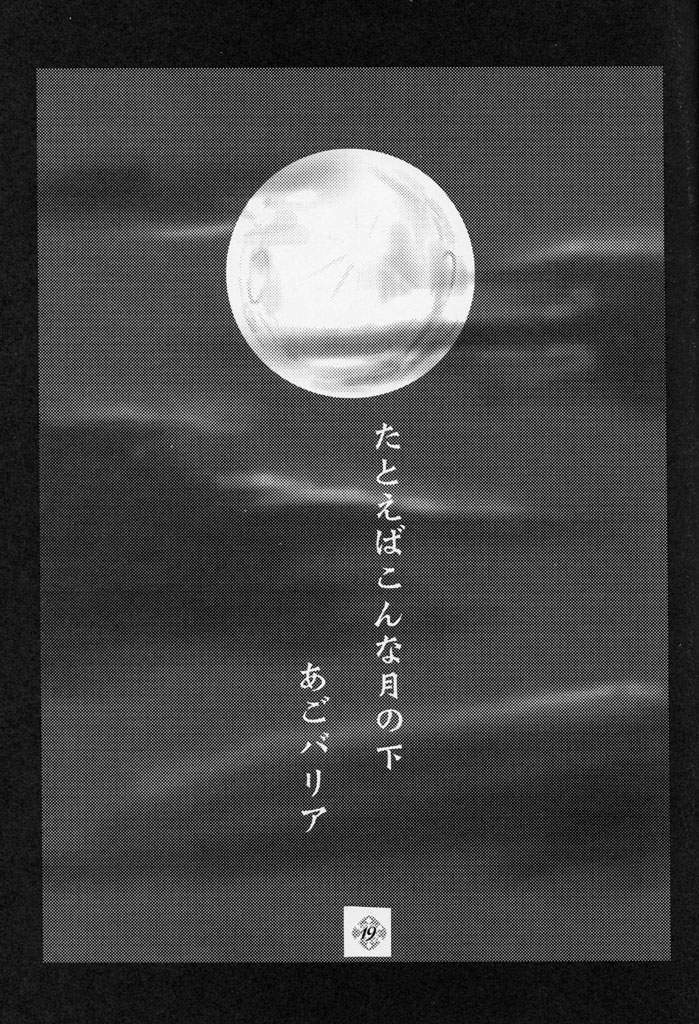 たとえばこんな月の下
あごバリア
19